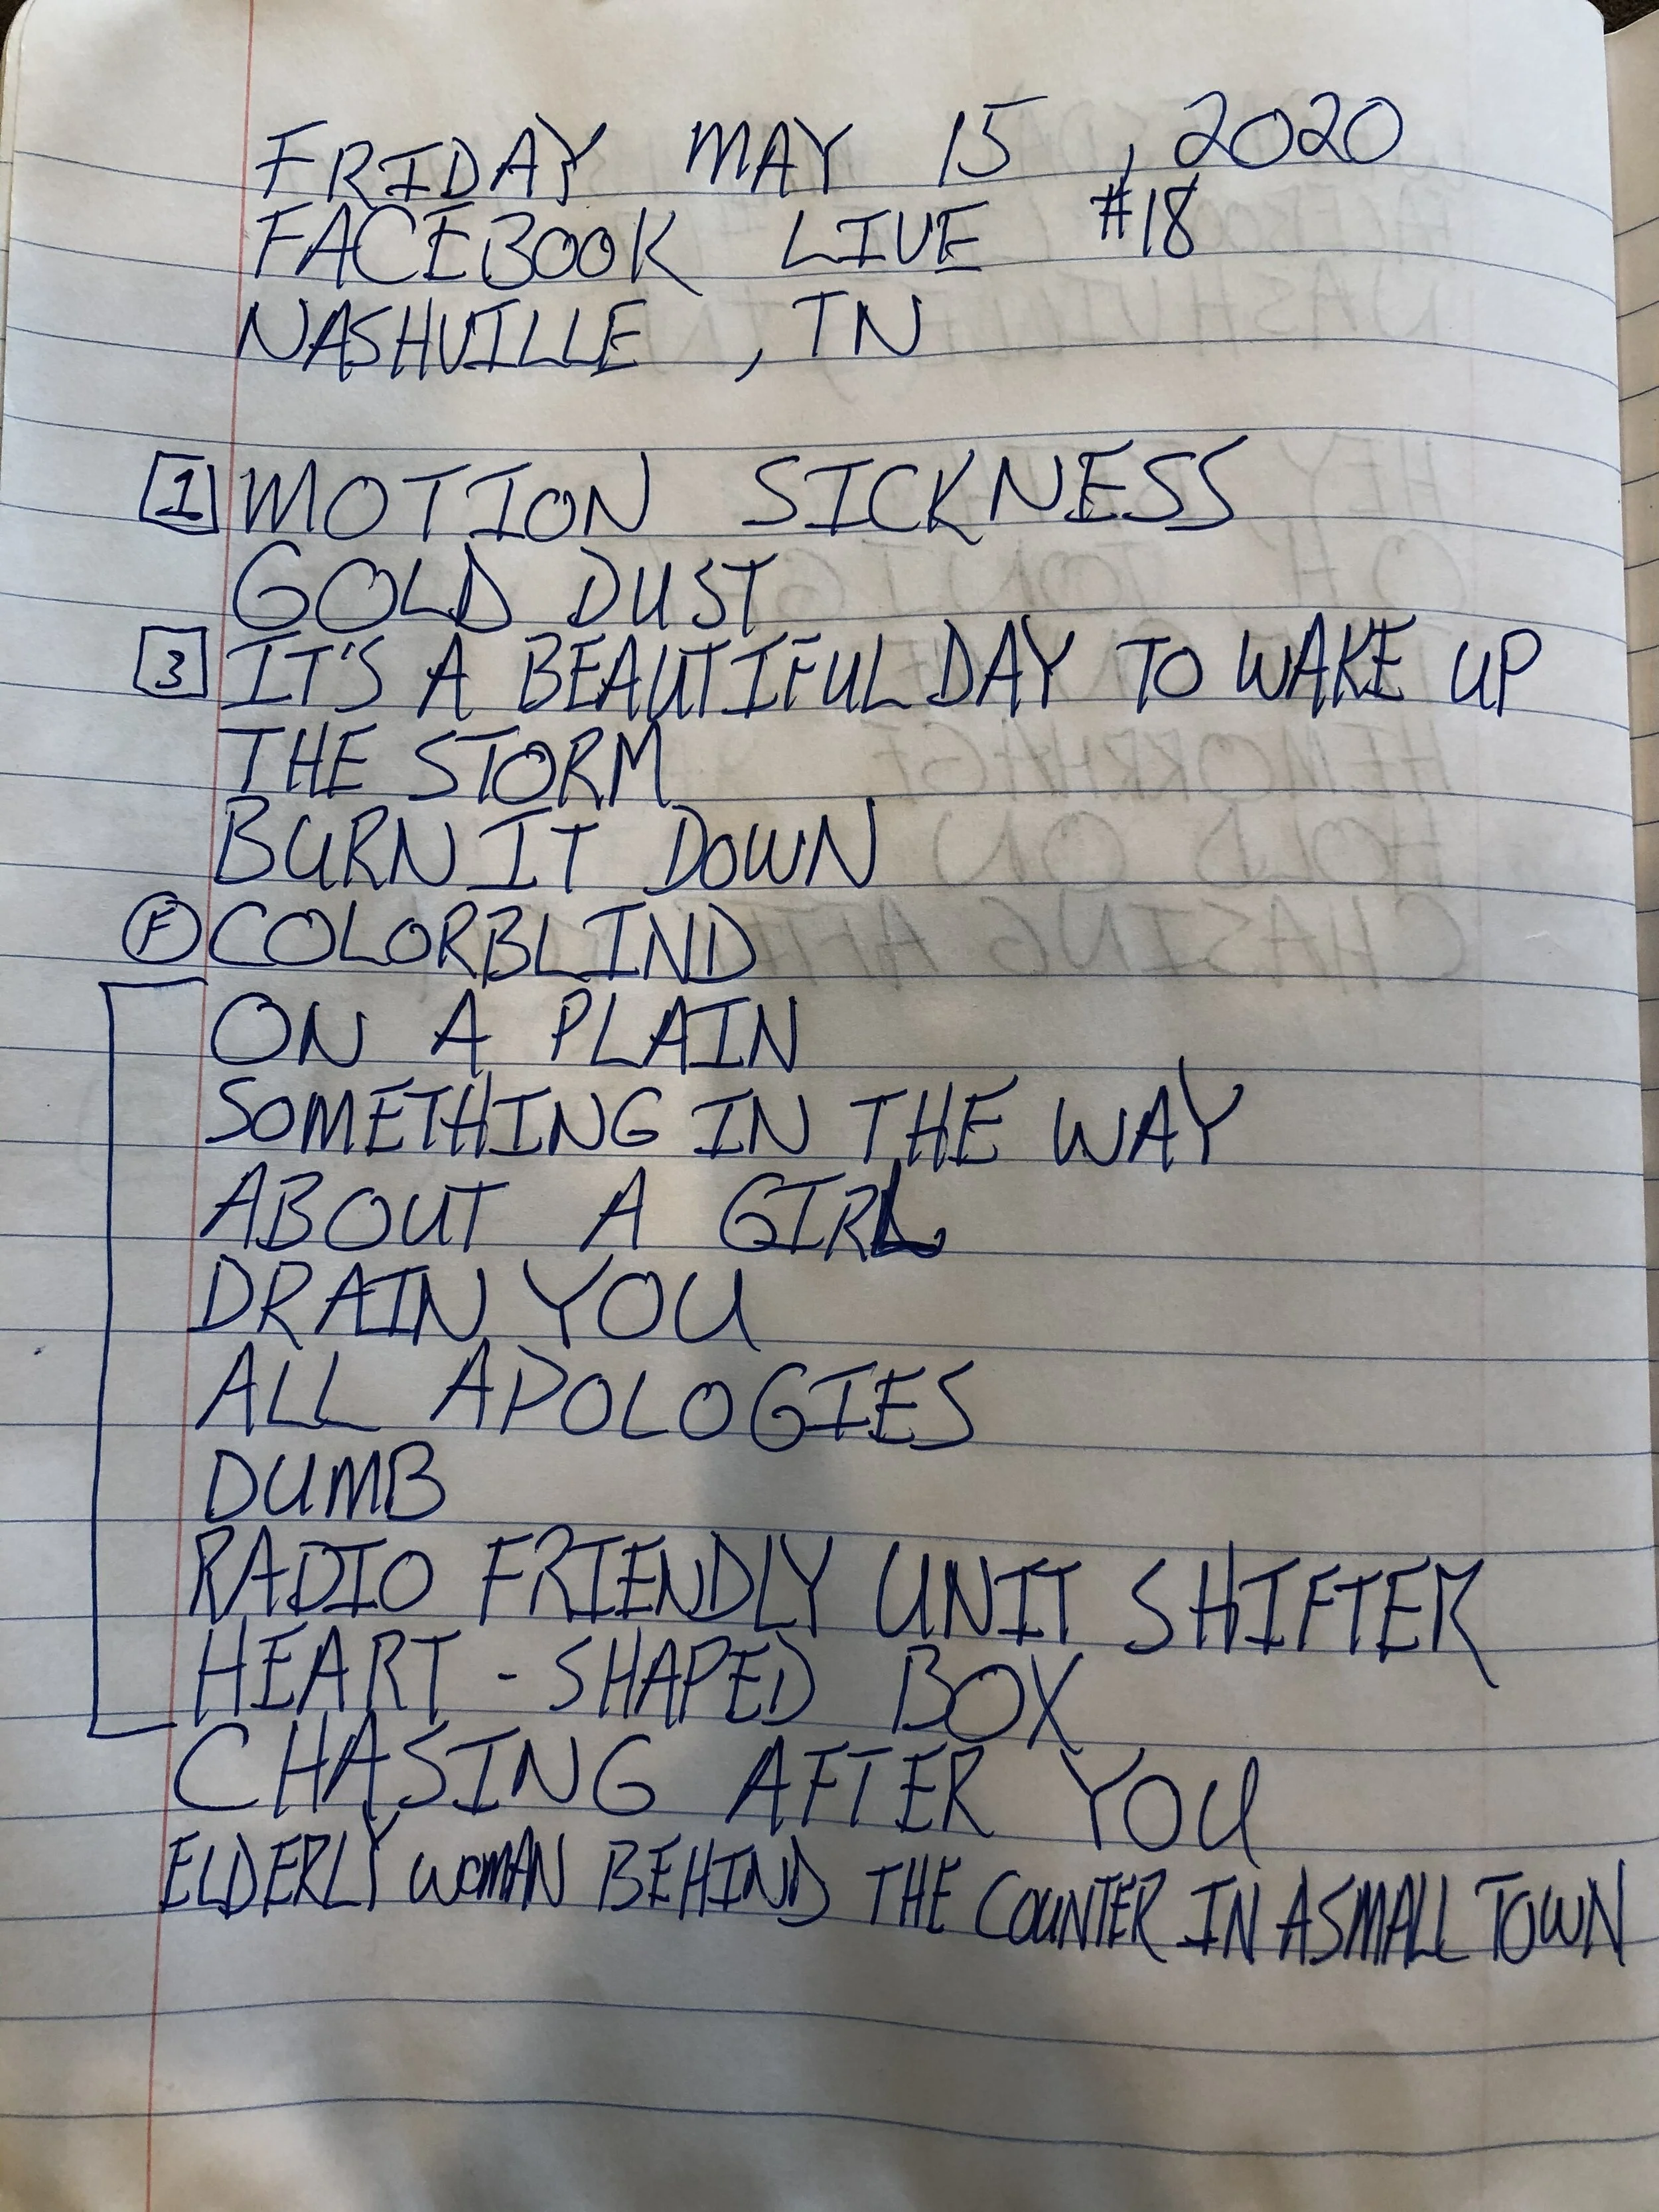 FRIDAY MAY 15, 2020
FACEBOOK LIVE #18
NASHVILLE, TN
1 MOTION SICKNESS
GOLD DUST
3 IT'S A BEAUTIFUL DAY TO WAKE UP
THE STORM
BURN IT DOWN
F COLORBLIND
ON A PLAIN
SOMETHING IN THE WAY
ABOUT A GIRL
DRAIN YOU
ALL APOLOGIES
DUMB
RADIO FRIENDLY UNIT SHIFTER
HEART-SHAPED BOX
CHASING AFTER YOU
ELDERLY WOMAN BEHIND THE COUNTER IN A SMALL TOWN